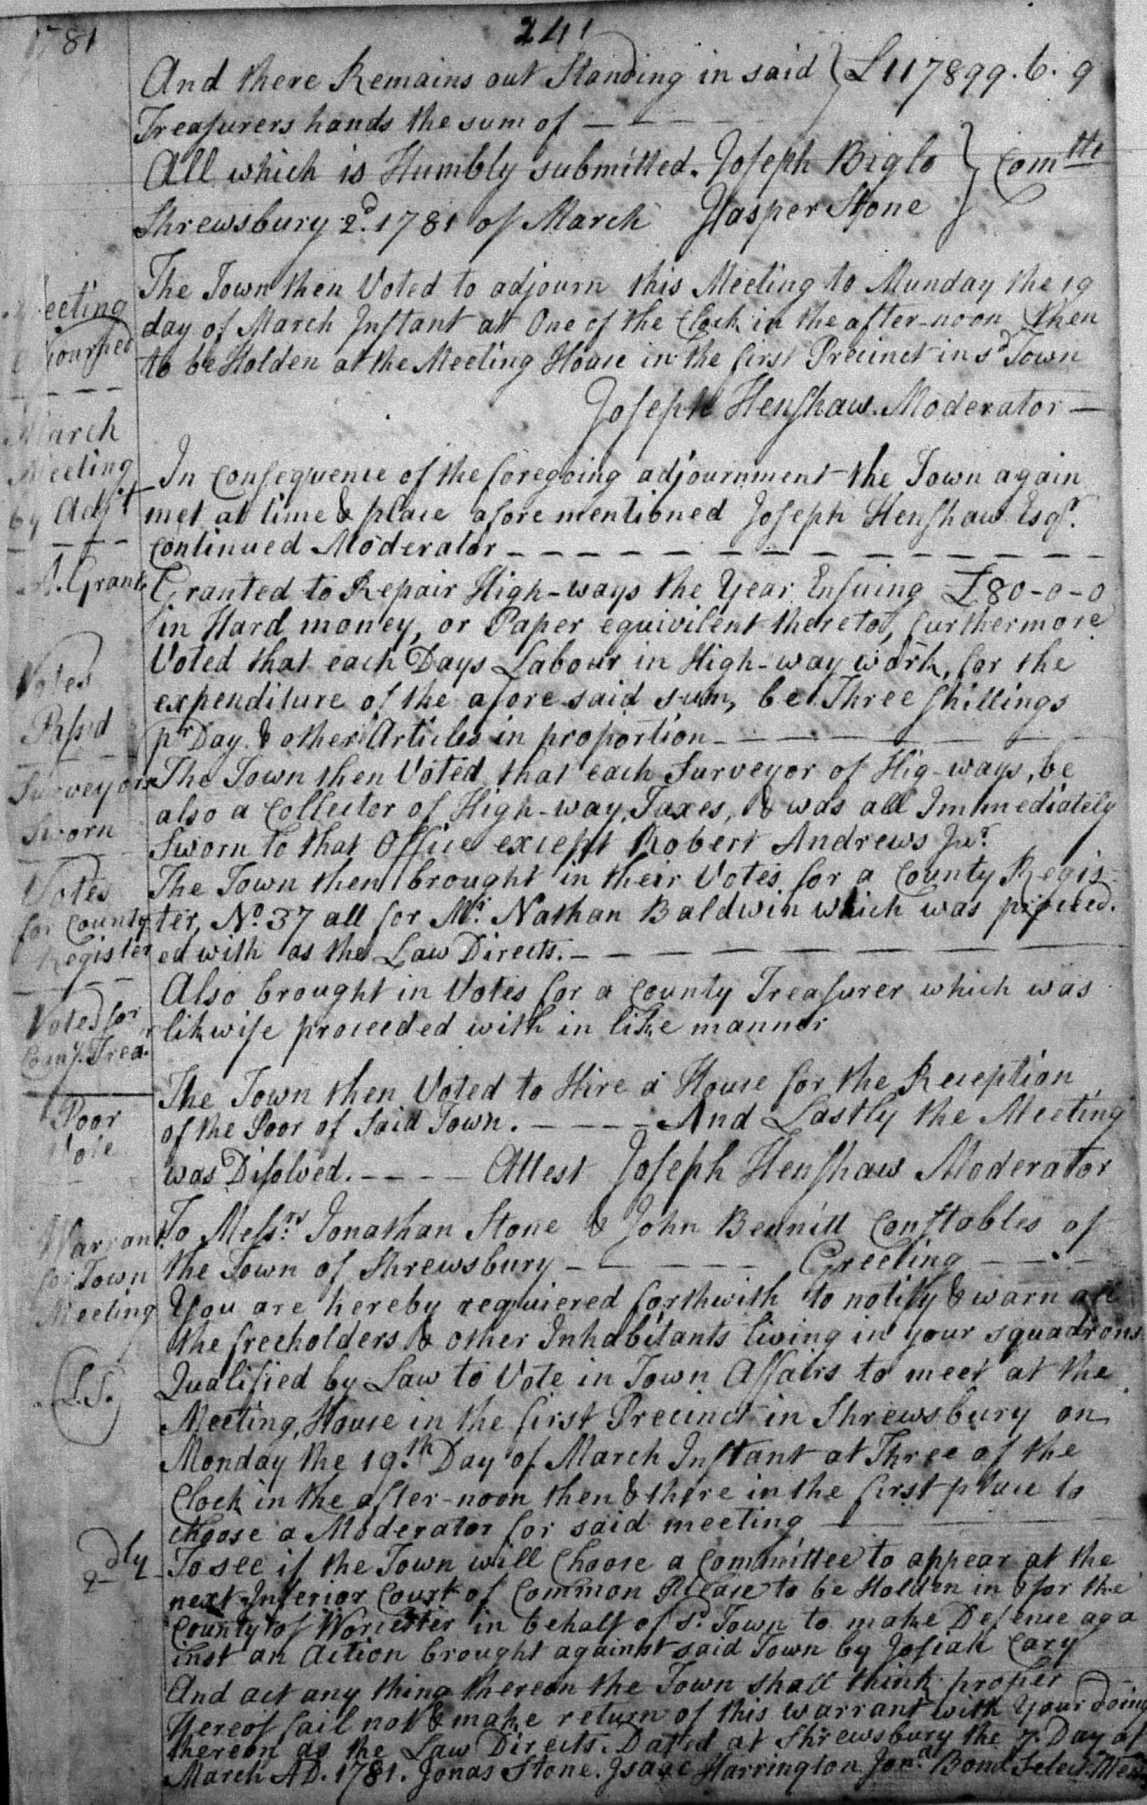 1781
241
And there Remains out Standing in said } £117899. 6. 9
Treasurers hands the sum of — — — —
All which is Humbly submitted. Joseph Biglo } Comtte
Shrewsbury 2d. 1781 of March Hasper Stone
Meeting
The Town then Voted to adjourn this Meeting to Munday the 19
day of March Instant att One of the Clock in the after-noon then
to be Holden at the Meeting House in the first Precinct in sd Town
Joseph Henshaw. Moderator —
March
Meeting
by Adjt
In Consequence of the foregoing adjournment the Town again
met at time & place afore mentioned Joseph Henshaw Esqr.
Continued Moderator — — — — — — — — —
Grant
Granted to Repair High-ways the Year Ensuing £80-0-0
in Hard money, or Paper equivilent thereto, furthermore
Votes
Passd
Voted that each Days Labour in High-way work, for the
expenditure of the afore said sum, be Three shillings
pr Day. & other Articles in proportion — — — — —
Surveyors
Sworn
The Town then Voted that each Surveyor of Hig-ways, be
also a Collector of High-way Taxes, & was all Immediately
Sworn to that Office except Robert Andrews Jur.
Votes
for County
Register
The Town then brought in their Votes for a County Regis-
ter, No. 37 all for Mr. Nathan Baldwin which was proceed.
ed with as the Law Directs. — — — — — —
Votes for
County. Trea.
Also brought in Votes for a County Treasurer which was
likwise proceeded with in like manner
Poor
Vote
The Town then Voted to Hire a House for the Reception
of the Poor of Said Town. — — — — And Lastly the Meeting
was Disolved. — — — — Attest Joseph Henshaw Moderator
Warrant
for Town
Meeting
To Messrs. Jonathan Stone & John Bennitt Constables of
the Town of Shrewsbury — — — — — Greeting — — —
You are hereby requiered forthwith to notify & warn all
the freeholders & other Inhabitants living in your squadrons
(L.S.)
Qualified by Law to Vote in Town Affairs to meet at the
Meeting, House in the first Precinct in Shrewsbury on
Monday the 19th Day of March Instant at Three of the
Clock in the after-noon then & there in the first place to
Choose a Moderator for said meeting
2dly
To see if the Town will Choose a Committee to appear at the
next Inferior Court of Common Please to be Holden in & for the
County of Worcester in behalf of sd. Town to make Defence aga
inst an Action brought against said Town by Josiah Cary
And act any thing thereon the Town shall think proper
Hereof fail not & make return of this warrant with Your doing
thereon as the Law Directs. Dated at Shrewsbury the 7 Day of
March AD. 1781. Jonas Stone. Isaac Harrington Jona. Bond Select Men